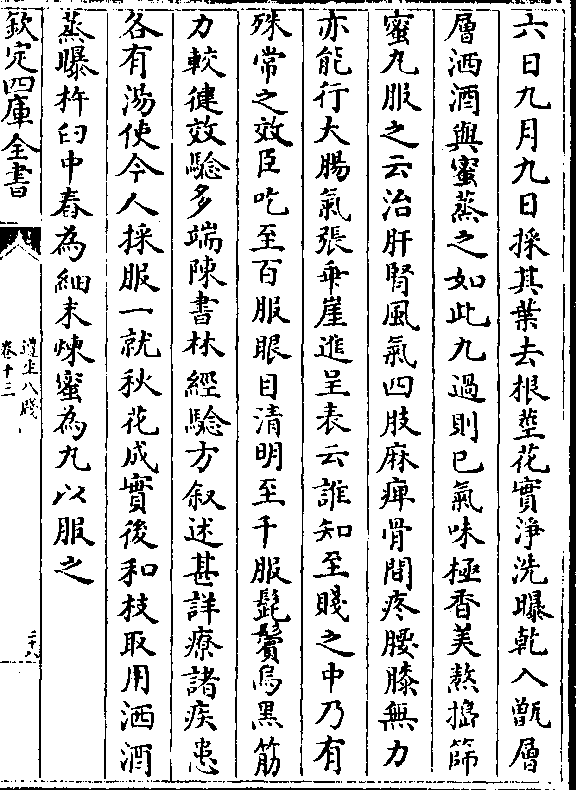 六日九月九日採其葉去根莖花實淨洗曝乾入甑層
層洒酒與蜜蒸之如此九過則已氣味極香美熬搗篩
蜜丸服之云治肝腎風氣四肢麻痺骨間疼腰膝無力
亦能行大腸氣張乖崖進呈表云誰知至賤之中乃有
殊常之效臣吃至百服眼目清明至千服髭鬢烏黑筋
力較徤效驗多端陳書林經驗方叙述甚詳療諸疾患
各有湯使今人採服一就秋花成實後和枝取用洒酒
蒸曝杵臼中舂為細末煉蜜為丸以服之
欽定四庫全書
遵生八牋
卷十三
二十八